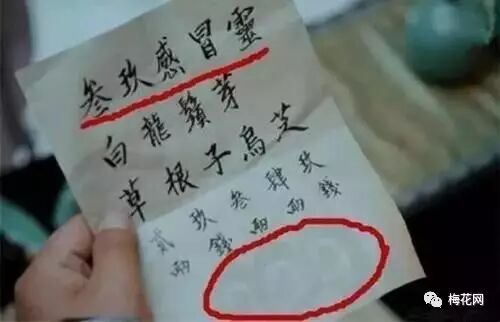 叁玖感冒靈
白龍鬚芽
草根子烏芝
貳玖叁肆玖
兩錢兩兩錢
梅花网